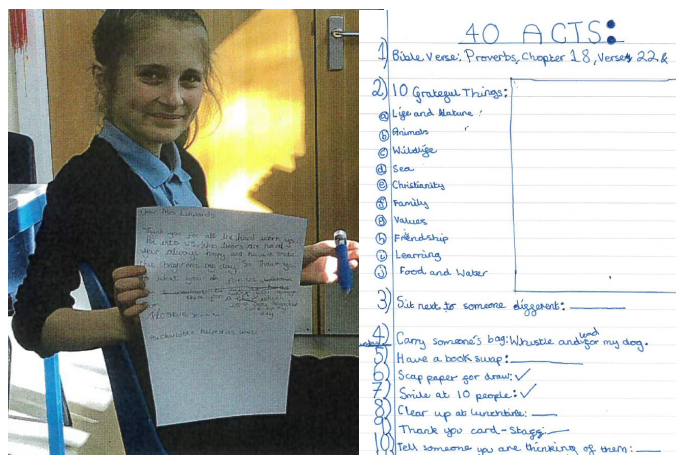 Dear Mrs Edwards
Thank you for all the hard work you
Put into us
your always happy and have a smile
that brightens my day. So thank you
for what you do
40 ACTS:
1) Bible Verse: Proverbs, Chapter 18, Verses 22 &
2) 10 Grateful Things:
a Life and Nature
b Animals
c Wildlife
d Sea
e Christianity
f Family
g Values
h Friendship
i Learning
j Food and Water
3) Sit next to someone different:
4) Carry someone's bag: Whistle and lead for my dog.
5) Have a book swap:
6) Scap paper for draw: ✓
7) Smile at 10 people: ✓
8) Clear up at lunchtime:
9) Thank you card - Staff:
10) Tell someone you are thinking of them: